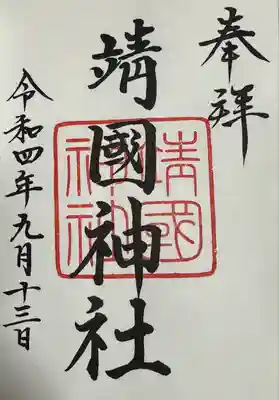 奉拝
靖國神社
令和四年九月十三日
靖國
神社